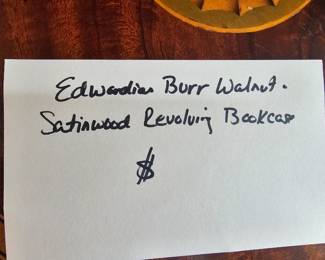 Edwardian Burr Walnut.
Satinwood Revolving Bookcase
$